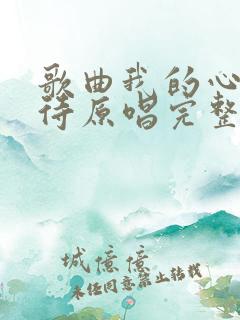 歌曲我的心
待原唱完整
城億億
未经同意禁止转载